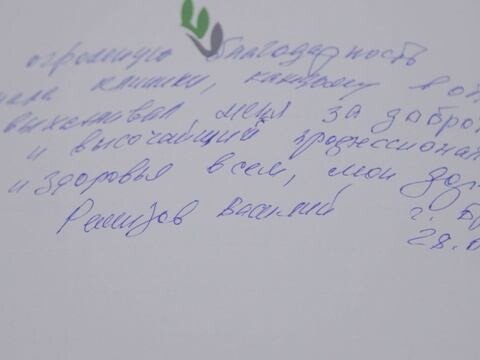 огромную благодарность
нала клиники, каждому в от
выхаживал меня за добро
и высочайший професионал
и здоровья всем, мои дор
Ремизов Василий г. Б
28.0